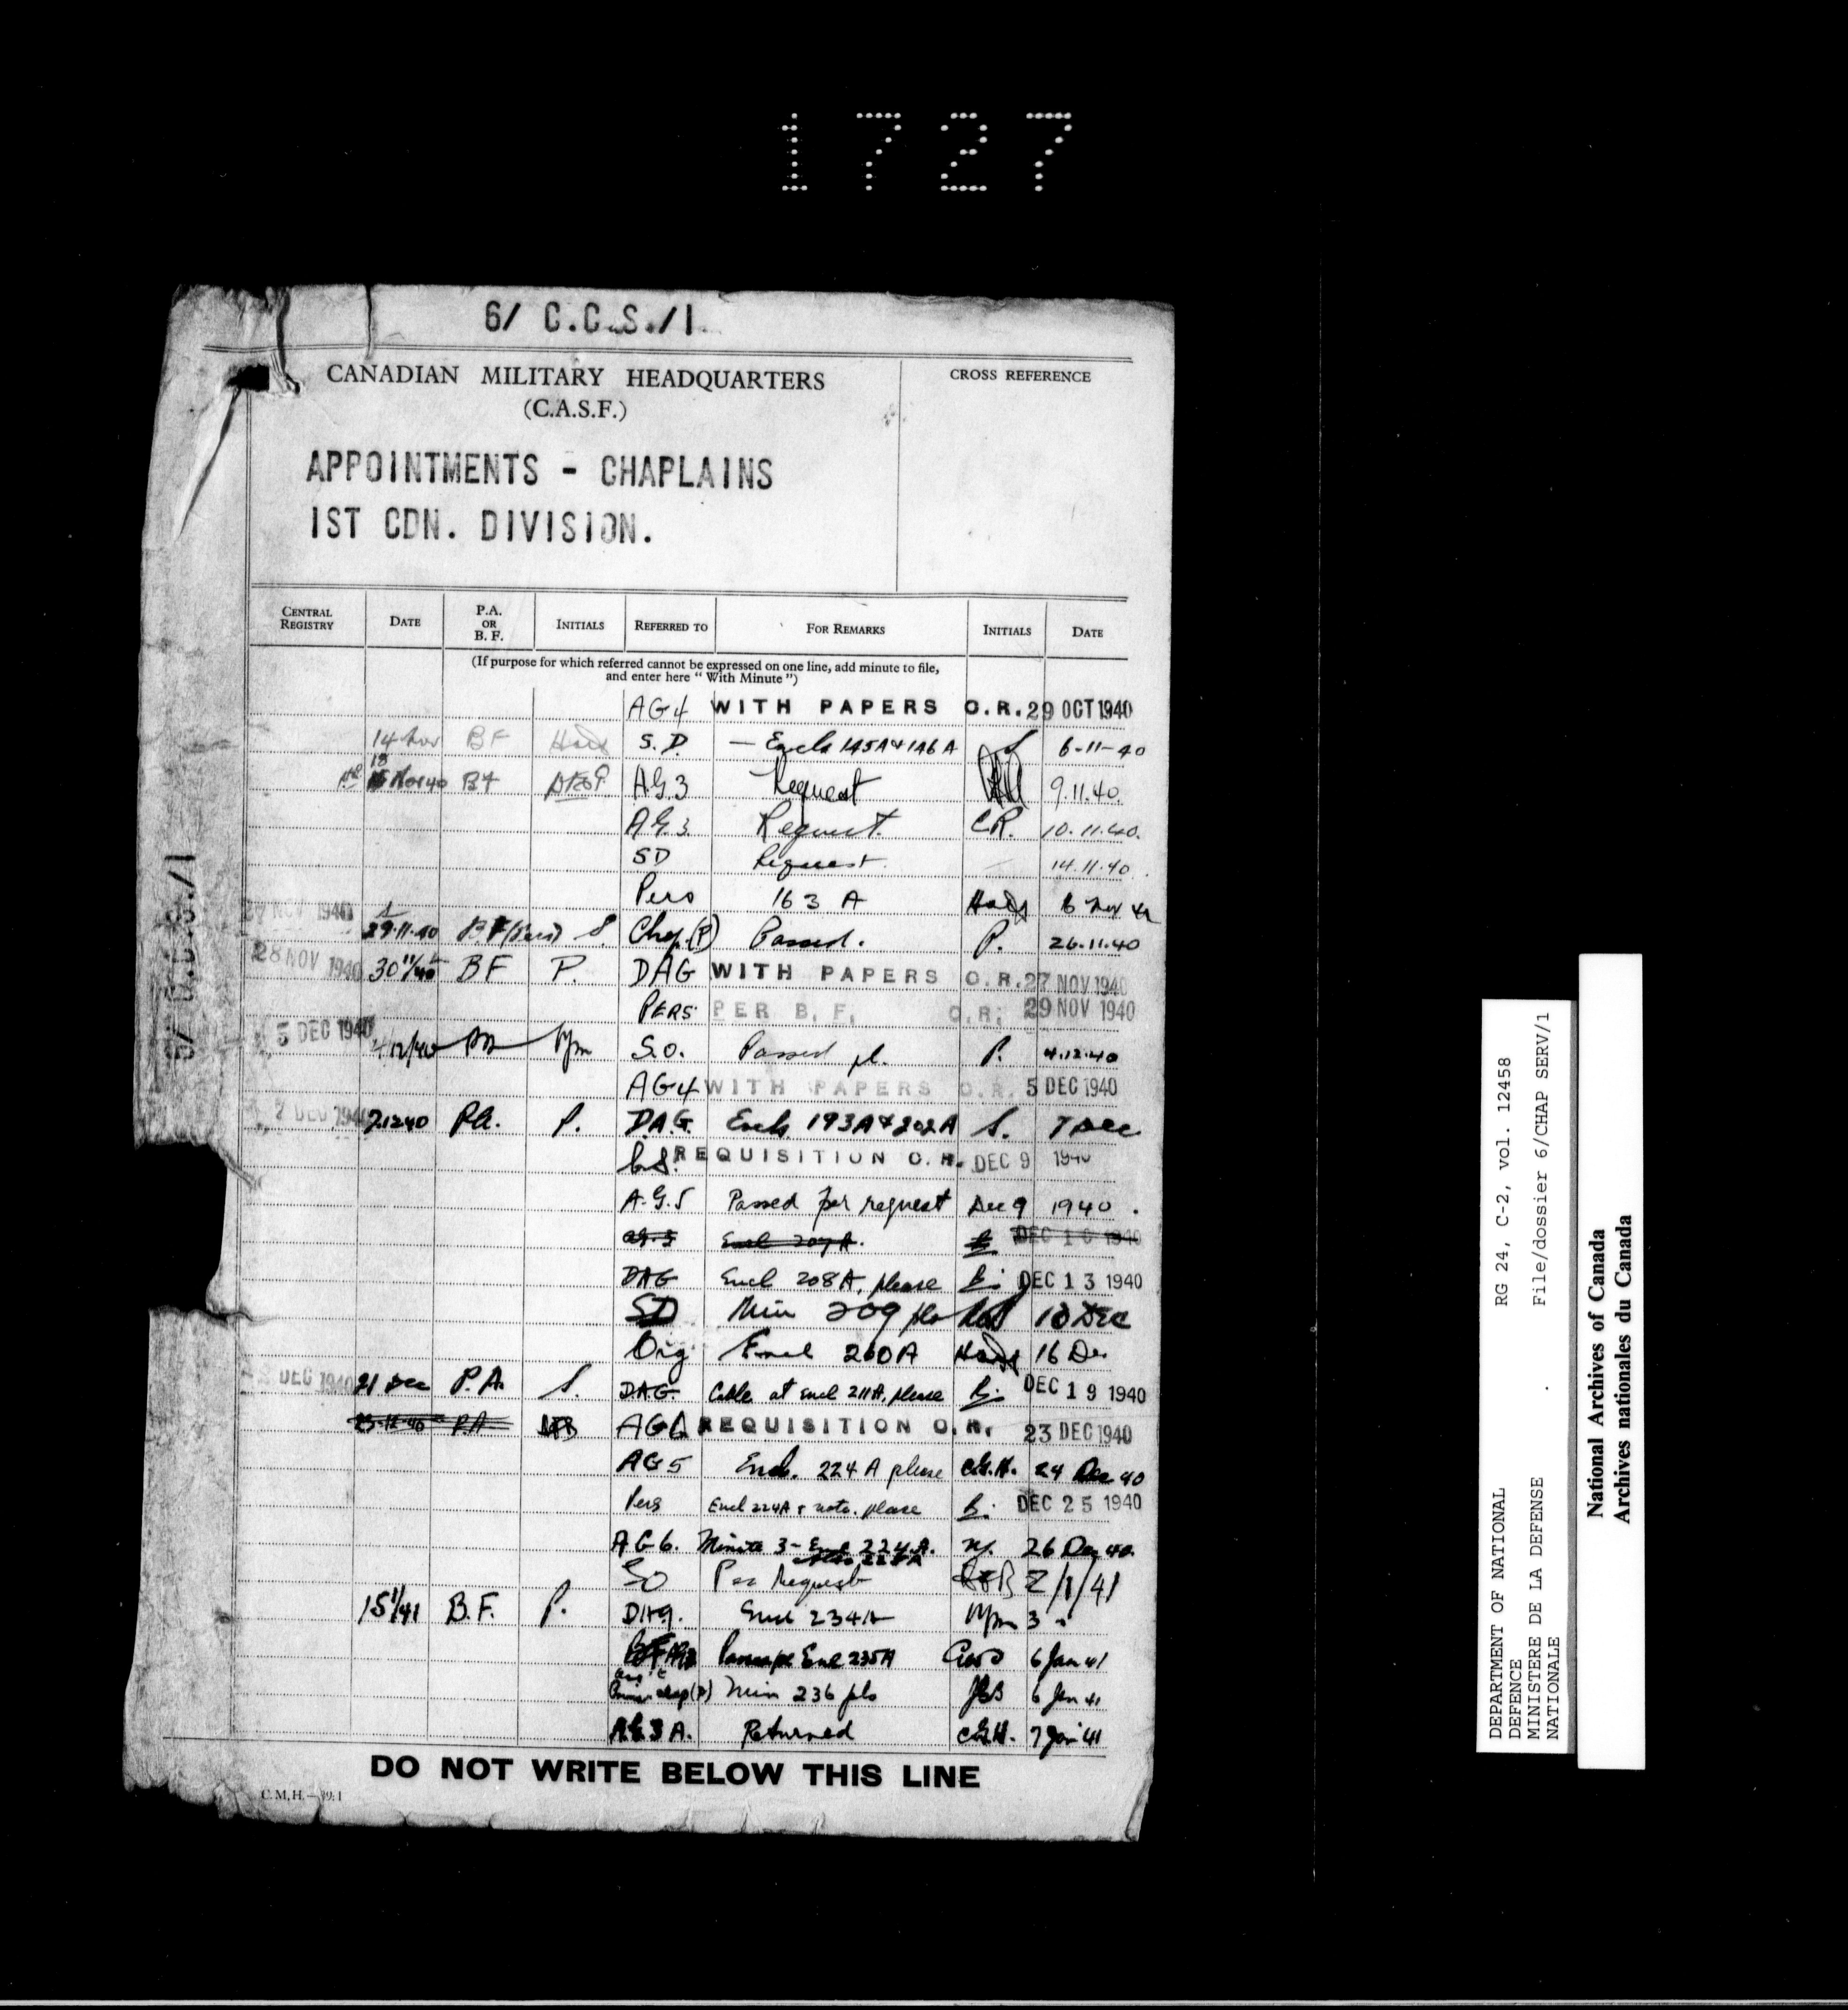 1727
6/ C.C.S./1
CANADIAN MILITARY HEADQUARTERS
(C.A.S.F.)
CROSS REFERENCE
APPOINTMENTS - CHAPLAINS
1ST CDN. DIVISION.
CENTRAL REGISTRY DATE P.A. OR B. F. INITIALS REFERRED TO FOR REMARKS INITIALS DATE
(If purpose for which referred cannot be expressed on one line, add minute to file,
and enter here "With Minute")
AG4 WITH PAPERS O.R. 29 OCT 1940
14 Nov BF S.D. — Encls 145A & 146A 6-11-40
18 Nov 40 BF A.G.3 Request 9.11.40.
A.G.3. Request. C.R. 10.11.40.
SD Request. 14.11.40.
Pers 163 A
27 NOV 1940 29.11.40 B.F (Pers) S. Chap.(P) Passed. P. 26.11.40
28 NOV 1940 30 11/40 BF P. DAG WITH PAPERS O.R. 27 NOV 1940
PERS PER B. F. O.R. 29 NOV 1940
5 DEC 1940 4/12/40 S.O. Passed pl. P. 4.12.40
AG4 WITH PAPERS O.R. 5 DEC 1940
7 DEC 1940 7.12.40 P.A. P. D.A.G. Encls 193A & 202A S. 7 Dec
REQUISITION O.R. DEC 9 1940
A.G.5 Passed per request Dec 9 1940.
AG.5 Encl 207A. DEC 10 1940
DAG Encl 208A, please B. DEC 13 1940
SD Min 209 pls 13 DEC
Org Encl 210A 16 Dec
DEC 1940 21 Dec P.A. S. D.A.G. Cable at encl 211A, please B. DEC 19 1940
23-12-40 PA AG6 REQUISITION O.R. 23 DEC 1940
AG5 Encl. 224A please C.G.H. 24 Dec 40
Pers Encl 224A & note, please B. DEC 25 1940
AG6. Minute 3 - Encl 224A. 26 Dec 40.
SO Per Request 2/1/41
15 1/41 B.F. P. DAG. Encl 234A 3 "
Encl 235A 6 Jan 41
Chap (P) Min 236 pls 6 Jan 41
A.G.3 A. Returned C.G.H. 7 Jan 41
DO NOT WRITE BELOW THIS LINE
C.M.H.—39:1
6/ C.C.S./1
DEPARTMENT OF NATIONAL RG 24, C-2, vol. 12458
DEFENCE
MINISTERE DE LA DEFENSE File/dossier 6/CHAP SERV/1
NATIONALE
National Archives of Canada
Archives nationales du Canada